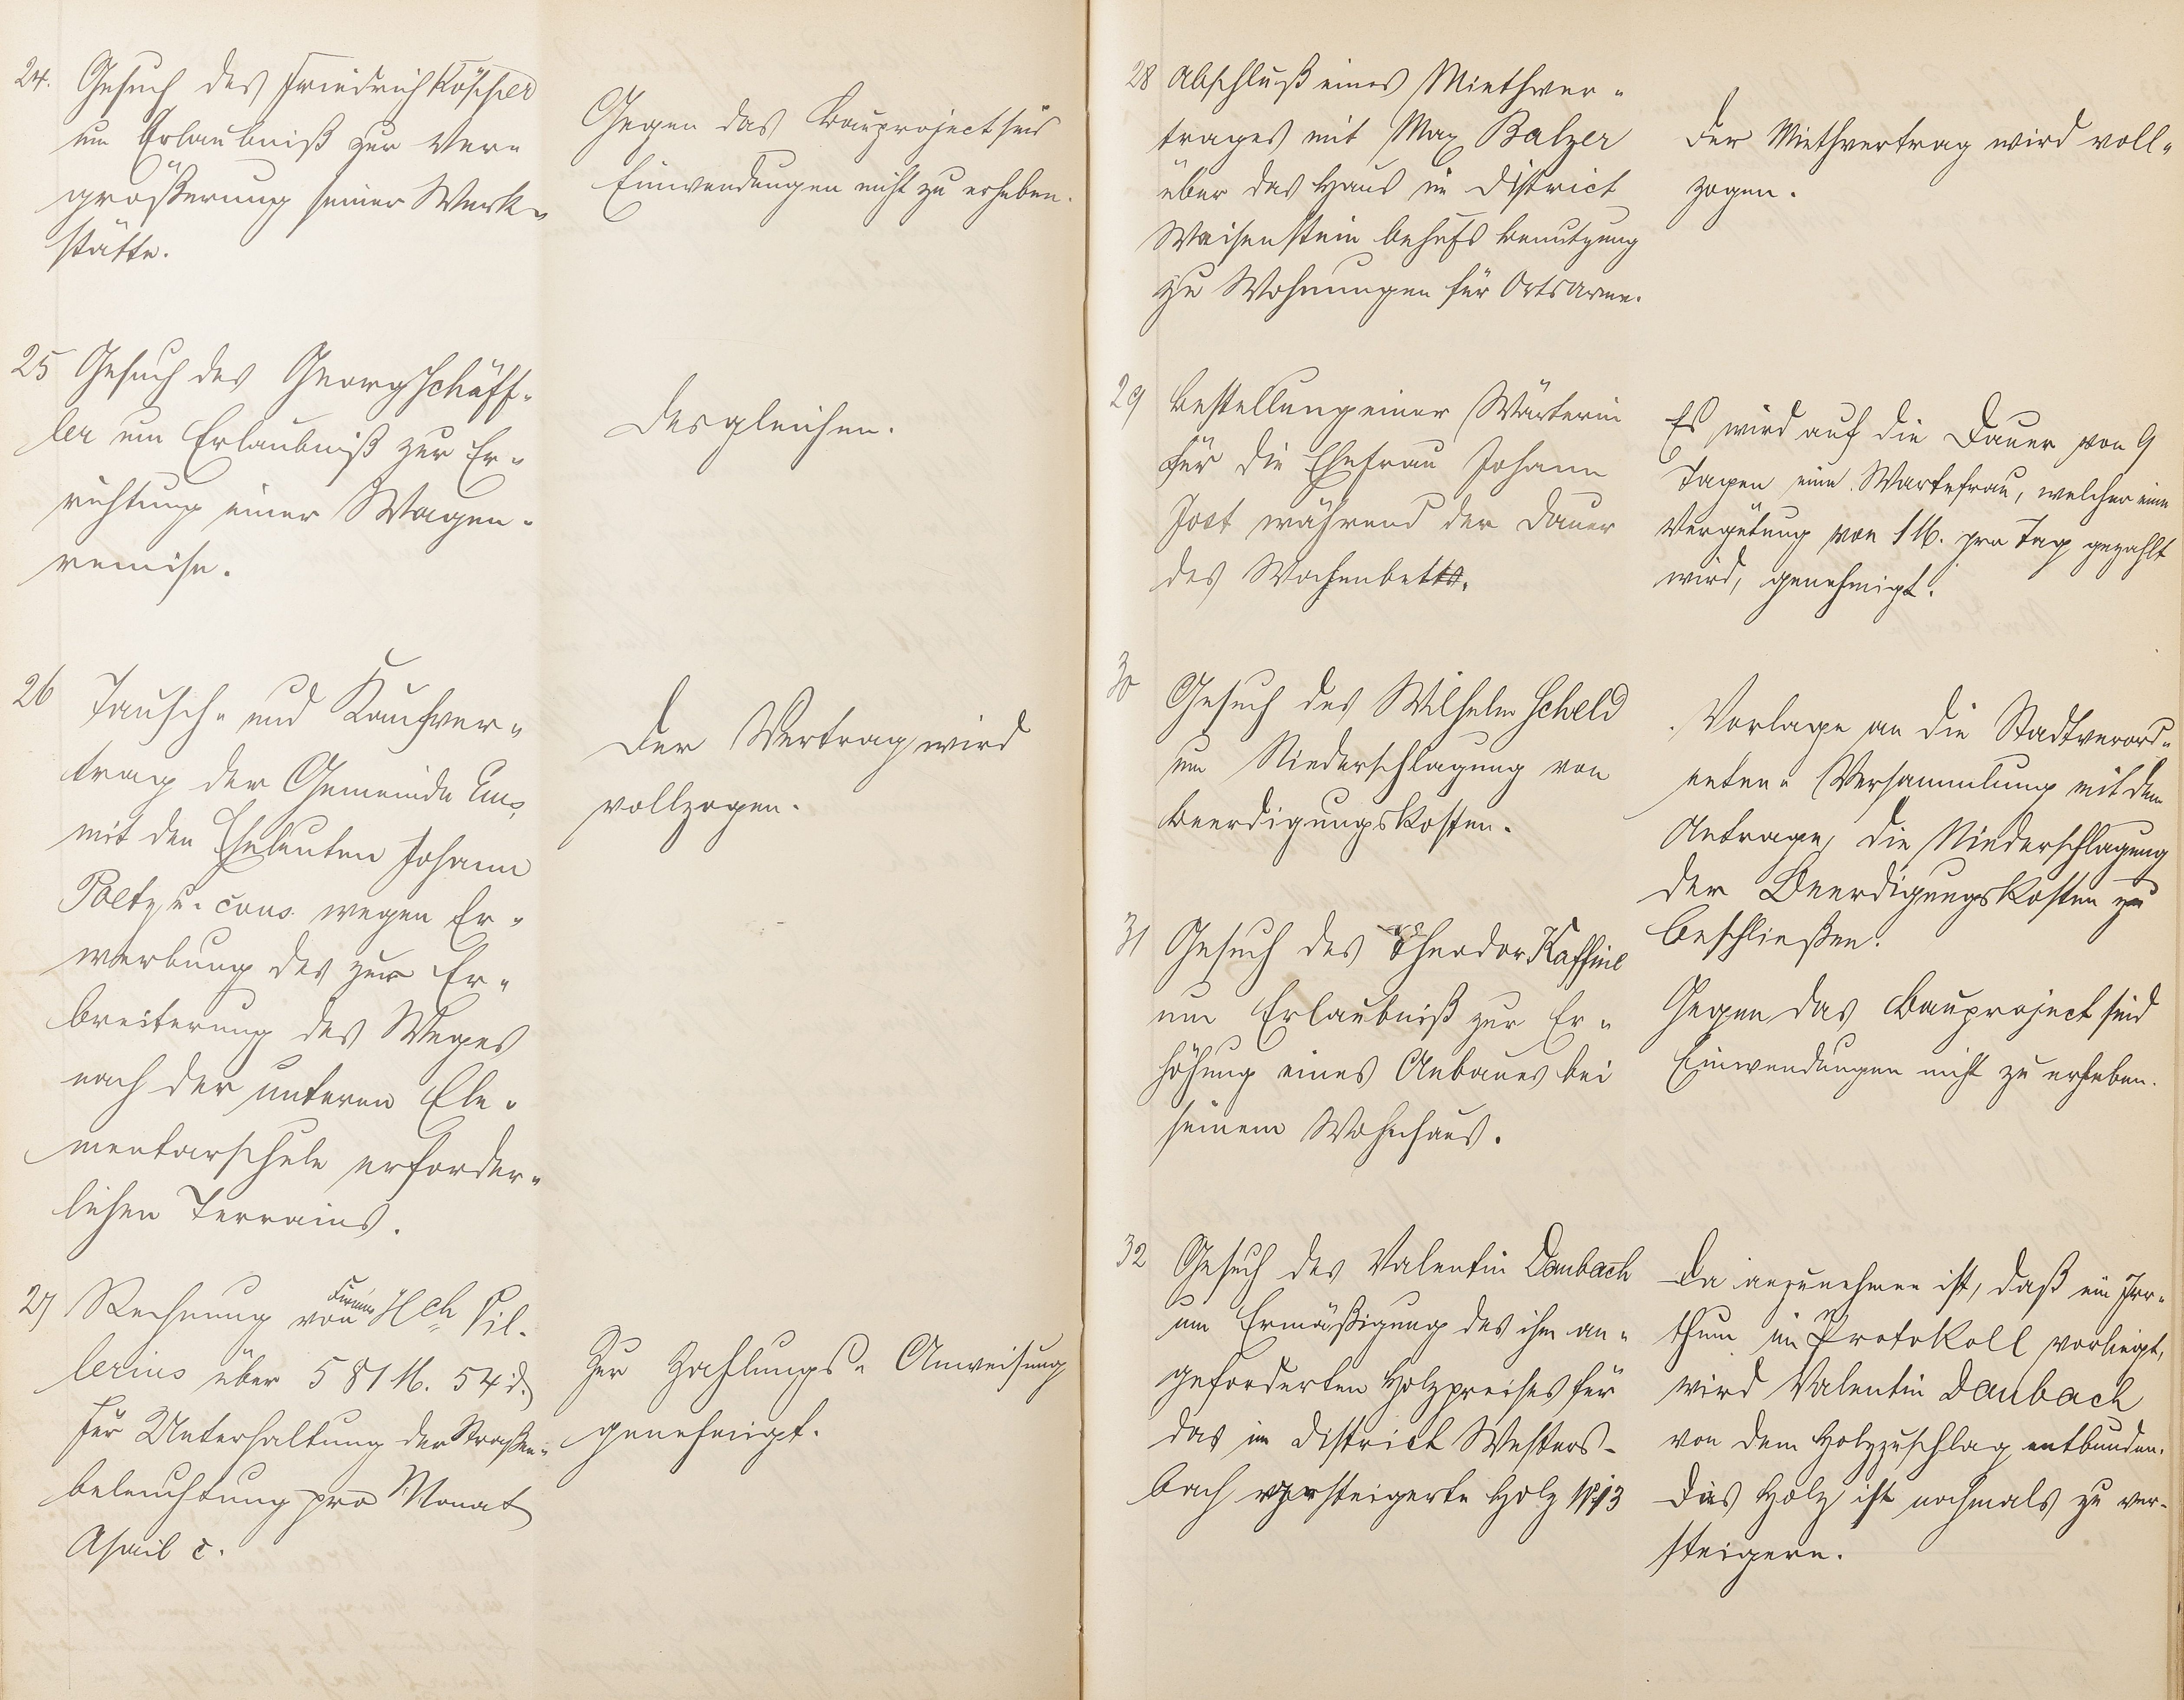 24. Gesuch des Friedrich Köppel
um Erlaubniß zur Ver-
größerung seiner Werk-
stätte.
Gegen das Bauproject sind
Einwendungen nicht zu erheben.
25 Gesuch des Georg Schäff-
ler um Erlaubniß zur Er-
richtung einer Wagen-
remise.
Desgleichen.
26 Tausch- und Kaufver-
trag der Gemeinde Ems
mit den Eheleuten Johann
u. cons. wegen Er-
werbung des zur Er-
breiterung des Weges
nach der unteren Ele-
mentarschule erforder-
lichen Terrains.
Der Vertrag wird
vollzogen.
27 Rechnung von Firma Hch Pil-
lerius über 581 M. 54 d.
für Unterhaltung der Straßen-
beleuchtung pro Monat
April c.
Zur Zahlungs- Anweisung
genehmigt.
28 Abschluß eines Miethver-
trages mit Max Balzer
über das Haus im District
Weisenstein behufs Benutzung
zu Wohnungen für Ortsarme.
Der Miethvertrag wird voll-
zogen.
29 Bestellung einer Wärterin
für die Ehefrau Johann
Jost während der Dauer
des Wochenbetts.
Es wird auf die Dauer von 9
Tagen eine Wartefrau, welcher eine
Vergütung von 1 M. pro Tag gezahlt
wird, genehmigt.
30 Gesuch des Wilhelm Scheld
um Niederschlagung von
Beerdigungskosten.
Vorlage an die Stadtverord-
neten- Versammlung mit dem
Antrage, die Niederschlagung
der Beerdigungskosten zu
beschließen.
31 Gesuch des Theodor Kaffine
um Erlaubniß zur Er-
höhung eines Anbaues bei
seinem Wohnhaus.
Gegen das Bauproject sind
Einwendungen nicht zu erheben.
32 Gesuch des Valentin Daubach
um Ermäßigung des ihm an-
geforderten Holzpreises für
das im District Westers-
bach versteigerte Holz № 13
Da anzunehmen ist, daß ein Irr-
thum im Protokoll vorliegt,
wird Valentin Daubach
von dem Holzzuschlag entbunden.
Das Holz ist nochmals zu ver-
steigern.